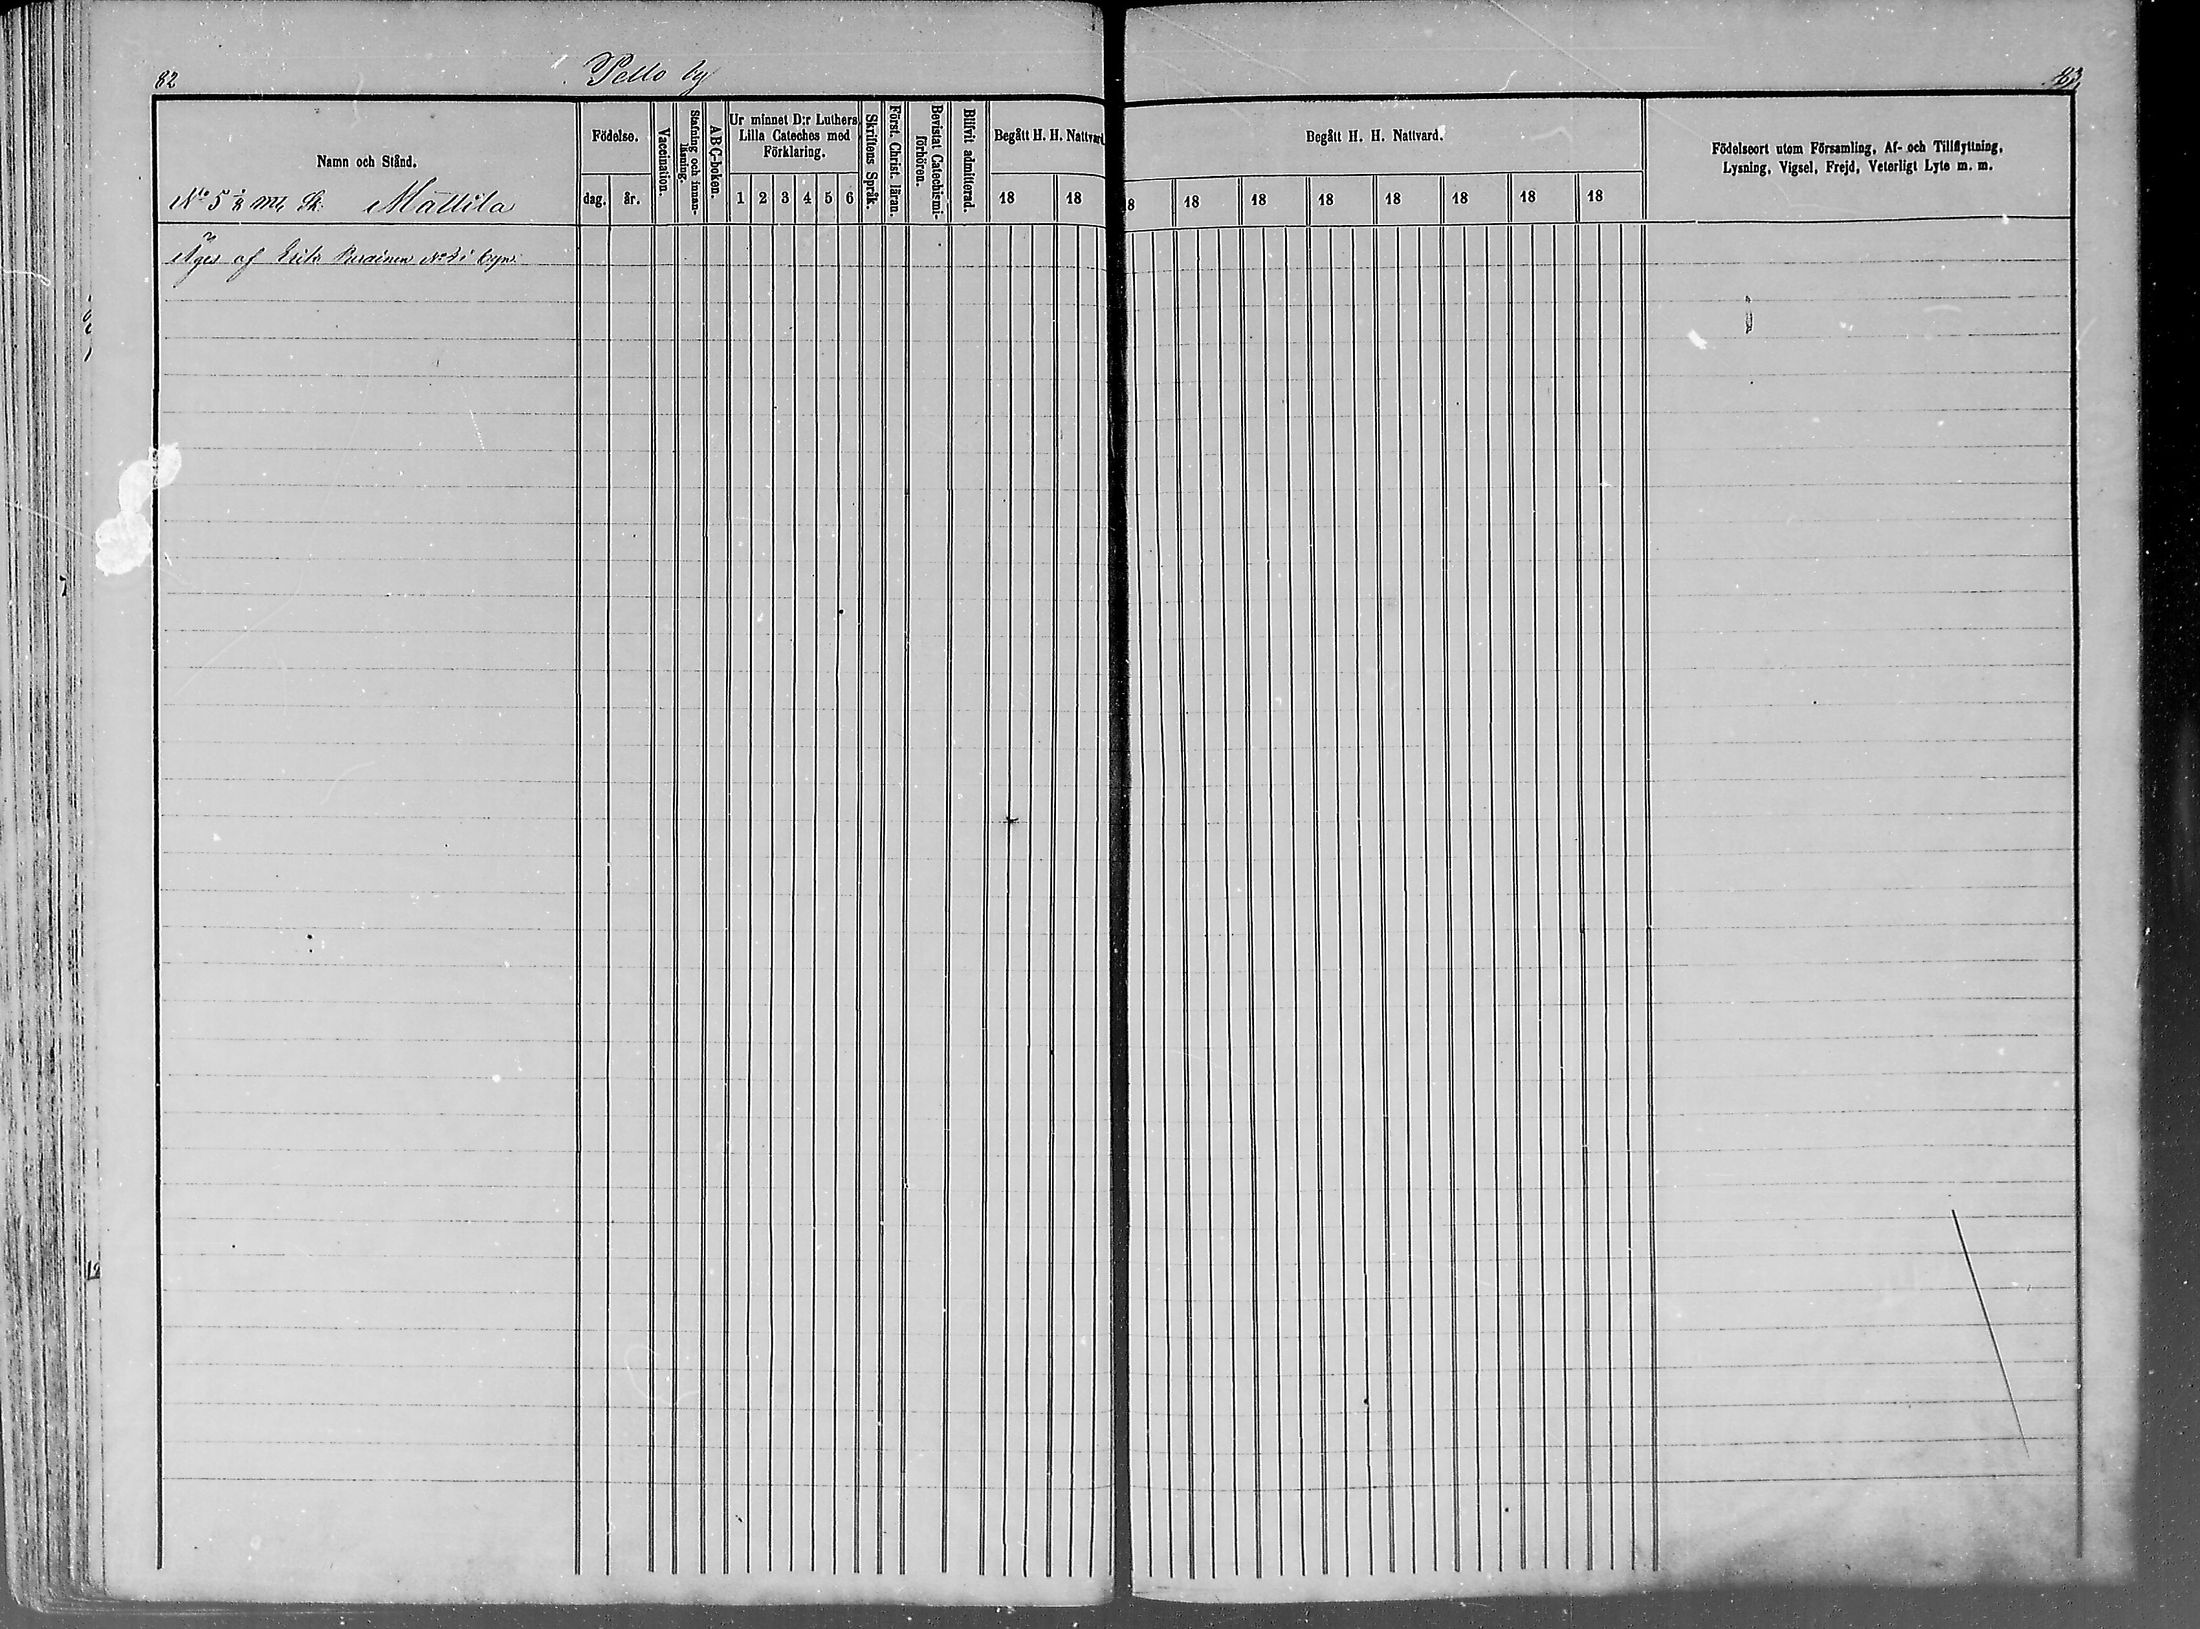 82
Pello by
83
Namn och Stånd.
No 5 ⅛ mtl Sk. Mattila
Födelse.
dag.
år.
Vaccination.
Stafning och innan-
läsning.
ABC-boken.
Ur minnet D:r Luthers
Lilla Cateches med
Förklaring.
1 2 3 4 5 6
Skriftens Språk.
Först. Christ. läran.
Bevistat Catechismi-
förhören.
Blifvit admitterad.
Begått H. H. Nattvard.
18 18
Begått H. H. Nattvard.
8 18 18 18 18 18 18 18
Födelseort utom Församling, Af- och Tillflyttning,
Lysning, Vigsel, Frejd, Veterligt Lyte m. m.
Äges af Erik No 2 i byn.